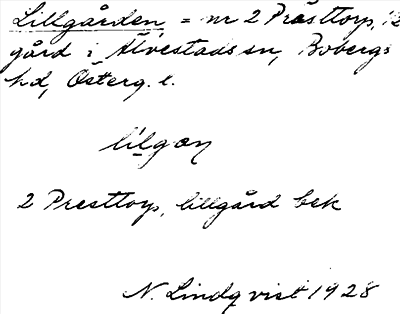 Lillgården = nr 2 Prästtorp,
gård i Älvestads sn, Bobergs
hd, Österg. l.
lilgɔn
2 Presttorp, lillgård bek
N. Lindqvist 1928